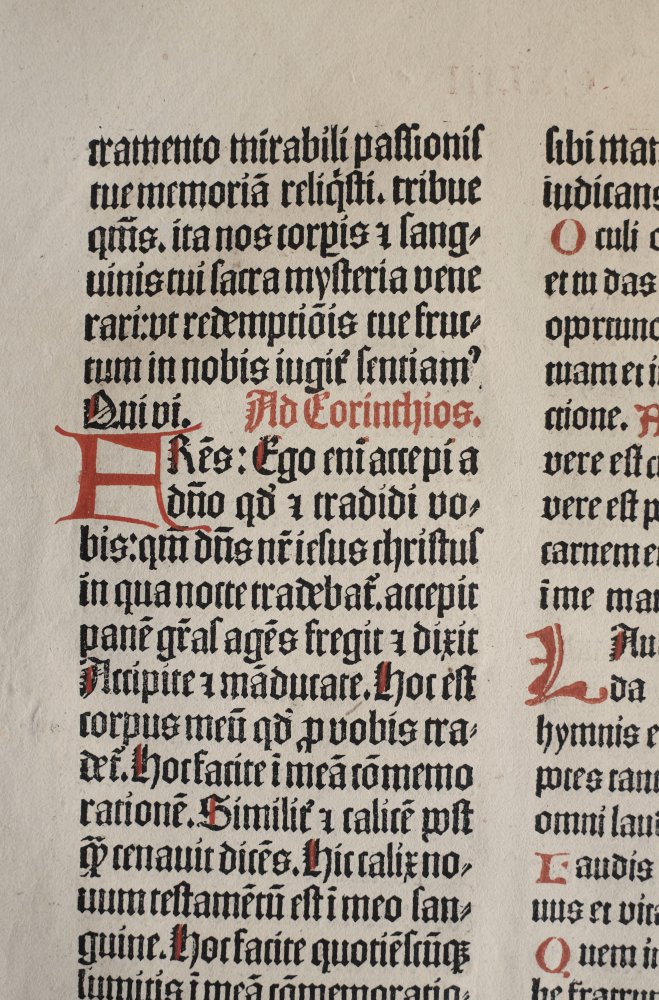 cramento mirabili passionis
tue memoriā reliq̇sti. tribue
qm̄s. ita nos corꝑis ⁊ sang⸗
uinis tui sacra mysteria vene
rari: vt redemptiōis tue fruc⸗
tum in nobis iugit᷑ sentiamꝰ
Qui vi. Ad Corinthios.
FRēs: Ego eni accepi a
dn̄o qd̓ ⁊ tradidi vo⸗
bis: qm̄ dn̄s nr̄ iesus christus
in qua nocte tradebat᷑. accepit
panē gr̄as agēs fregit ⁊ dixit
Accipite ⁊ māducate. Hoc est
corpus meū qd̓ ꝓ vobis tra⸗
det᷑. Hoc facite ī meā cōmemo
rationē. Similit᷑ ⁊ calicē post
qͣꝫ cenauit dicēs. Hic calix no⸗
uum testamētū est ī meo san⸗
guine. Hoc facite quotiēscūqꝫ
sumitis ī meā cōmemoratio⸗
sibi man
iudicans
Oculi o
et tu das
oportuno
tuam et i
ctione. A
vere est c
vere est p
carnem e
ī me man
LAu
da
hymnis e
potes tant
omni laud
Laudis
uus et vita
Quem in
be fratrum